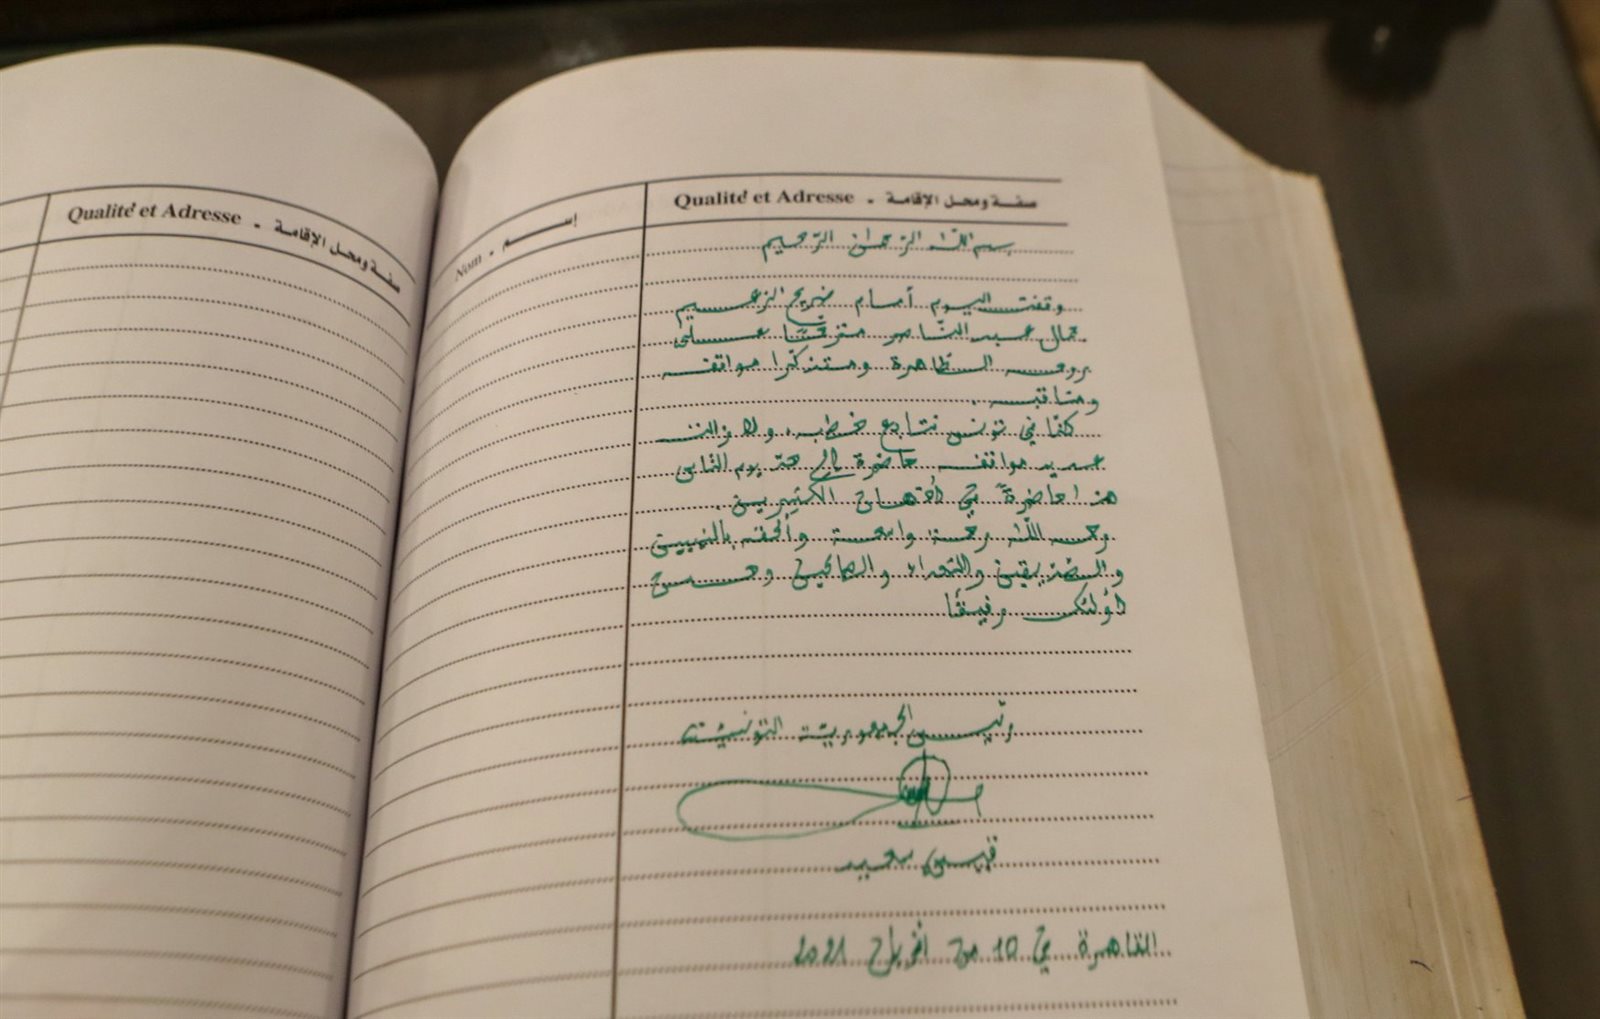 Qualité et Adresse - صفة ومحل الإقامة
Nom - إسم
Qualité et Adresse - صفة ومحل الإقامة
بسم الله الرّحمان الرّحيم
وقفت اليوم أمام ضريح الزعيم
جمال عبد النّاصر مترحّمًا على
روحه الطّاهرة ومتذكّرا مواقفه
ومناقبه.
كنّا في تونس نتابع خطبه، ولا زالت
عديد مواقفه حاضرة إلى حدّ يوم النّاس
هذا حاضرةً في أذهان الكثيرين.
رحمه اللّه رحمة واسعة وألحقه بالنّبيين
والصّديقين والشهداء والصالحين وحسن
أولئك رفيقًا
رئيس الجمهوريّة التّونسيّة
قيس سعيد
القاهرة في 10 من أفريل 2021